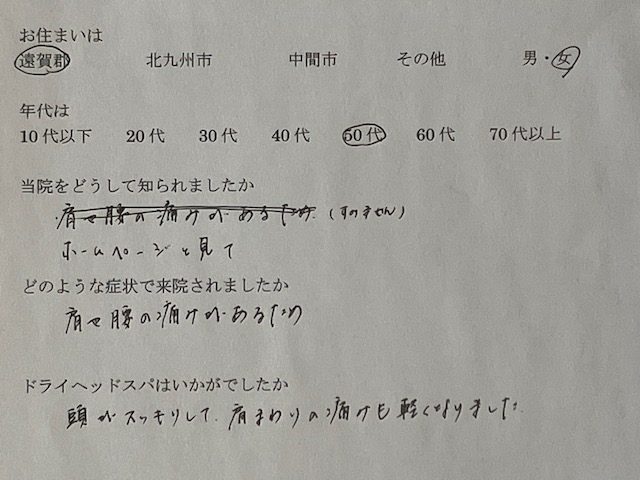 お住まいは
遠賀郡 北九州市 中間市 その他 男・女
年代は
10代以下 20代 30代 40代 50代 60代 70代以上
当院をどうして知られましたか
・肩や腰の痛みがあるため (すみません)
ホームページを見て
どのような症状で来院されましたか
肩や腰の痛みがあるため
ドライヘッドスパはいかがでしたか
頭がスッキリして、肩まわりの痛みも軽くなりました